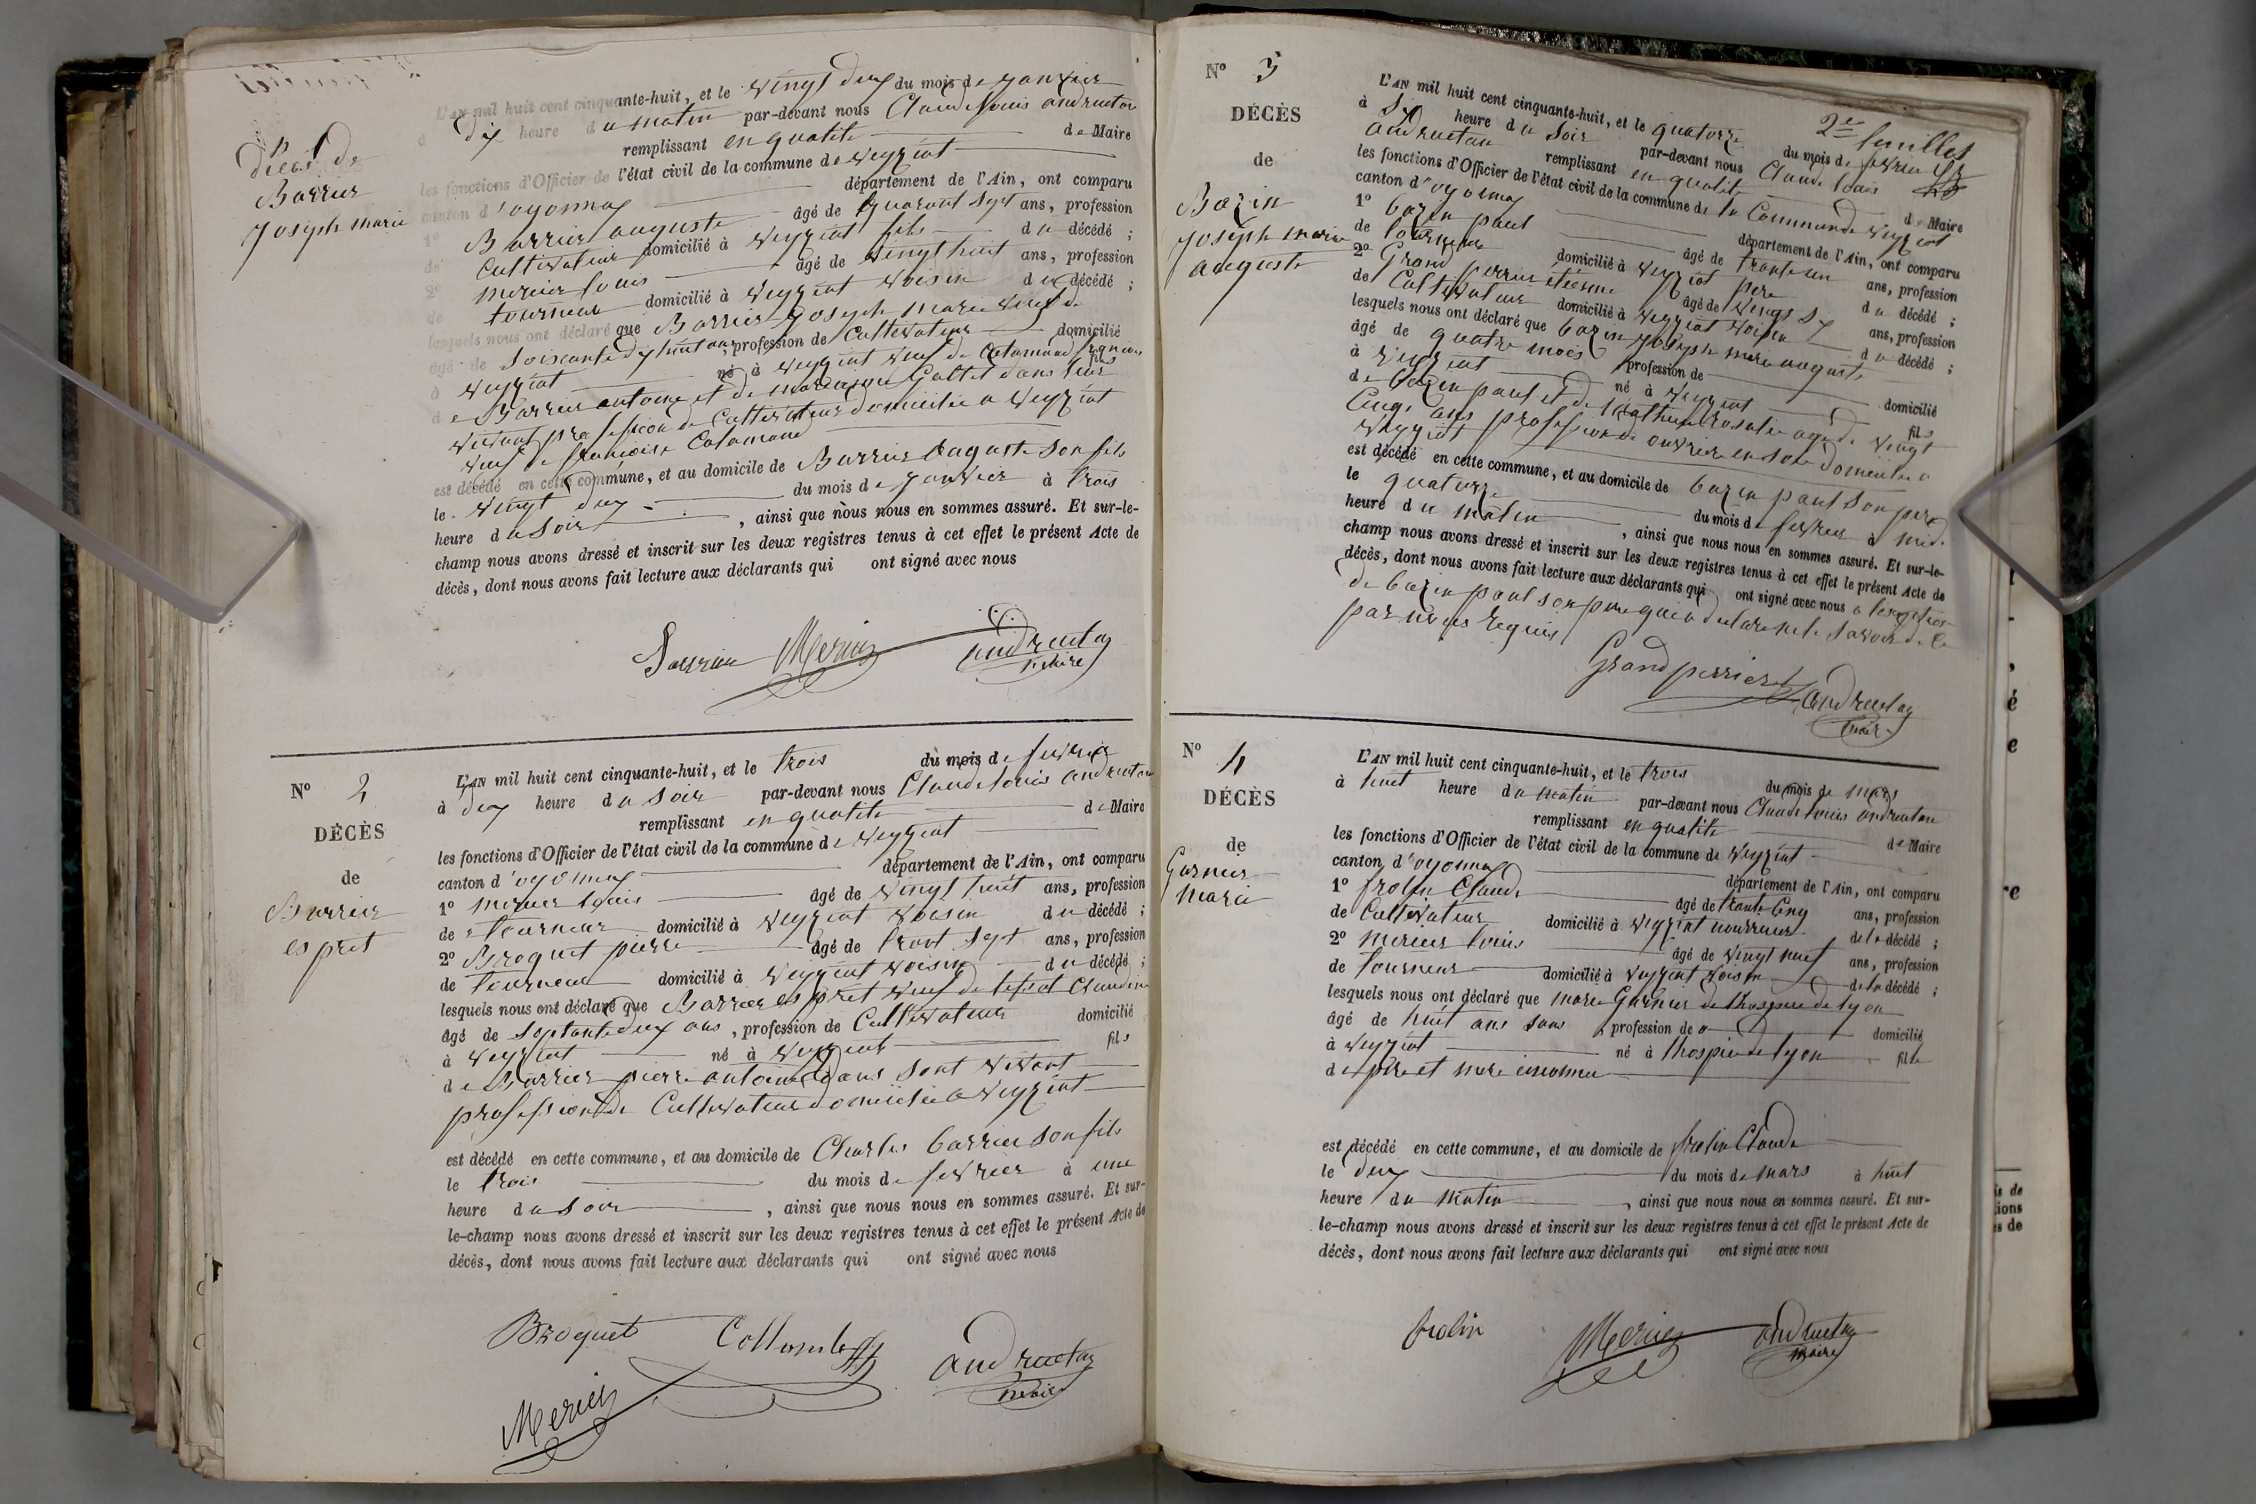 N° 1
décès de
Barrier
Joseph marie
L'AN mil huit cent cinquante-huit, et le vingt deux du mois de janvier
à dix heure du matin par-devant nous Claude Louis andruetan
remplissant en qualité de Maire
les fonctions d'Officier de l'état civil de la commune de veyziat
canton d'oyonnax département de l'Ain, ont comparu
1° Barrier auguste âgé de quarant sept ans, profession
de Cultivateur domicilié à veyziat fils du décédé ;
2° mercier louis âgé de vingt huit ans, profession
de tourneur domicilié à veyziat voisin du décédé ;
lesquels nous ont déclaré que Barrier Joseph marie veuf de
âgé de soixante dix huit ans, profession de Cultivateur domicilié
à veyziat né à veyziat veuf de Catamand fils
de Barrier antoine et de Gattet dans leur
vivant profession de Cultivateur domiciliée a veyziat
veuf de françoise Catamand
est décédé en cette commune, et au domicile de Barrier auguste son fils
le vingt deux du mois de janvier à trois
heure du soir, ainsi que nous nous en sommes assuré. Et sur-le-
champ nous avons dressé et inscrit sur les deux registres tenus à cet effet le présent Acte de
décès, dont nous avons fait lecture aux déclarants qui ont signé avec nous
Mercier andruetan
maire
N° 2
DÉCÈS
de
Barrier
espret
L'AN mil huit cent cinquante-huit, et le trois du mois de fevrier
à deux heure du soir par-devant nous Claude louis andruetan
remplissant en qualite de Maire
les fonctions d'Officier de l'état civil de la commune de veyziat
canton d'oyonnax département de l'Ain, ont comparu
1° mercier louis âgé de vingt huit ans, profession
de tourneur domicilié à veyziat voisin du décédé ;
2° Broquet pierre âgé de trant sept ans, profession
de tourneur domicilié à veyziat voisin du décédé ;
lesquels nous ont déclaré que Barrier espret veuf de Claudine
âgé de septante deux ans, profession de Cultivateur domicilié
à veyziat né à veyziat fils
de Barrier pierre antoine dans sont vivant
profession de Cultivateur domiciliée a veyziat
est décédé en cette commune, et au domicile de Charles barrier son fils
le trois du mois de fevrier à une
heure du soir, ainsi que nous nous en sommes assuré. Et sur-
le-champ nous avons dressé et inscrit sur les deux registres tenus à cet effet le présent Acte de
décès, dont nous avons fait lecture aux déclarants qui ont signé avec nous
Broquet Collomb andruetan
maire
Mercier
2e feuillet
N° 3
DÉCÈS
de
Bazin
Joseph marie
auguste
L'AN mil huit cent cinquante-huit, et le quatorze du mois de fevrier
à six heure du soir par-devant nous Claude louis
andruetan remplissant en qualité de Maire
les fonctions d'Officier de l'état civil de la commune de la Commune de veyziat
canton d'oyonnax département de l'Ain, ont comparu
1° bazin paul âgé de trante un ans, profession
de tourneur domicilié à veyziat pere du décédé ;
2° Grand perrier etienne âgé de vingt six ans, profession
de Cultivateur domicilié à veyziat voisin du décédé ;
lesquels nous ont déclaré que bazin joseph marie auguste
âgé de quatre mois profession de domicilié
à veyziat né à veyziat fils
de bazin paul et de rosalie age de vingt
Cinq ans profession de ouvrier en soie domiciliee a
veyziat
est décédé en cette commune, et au domicile de bazin paul son pere
le quatorze du mois de fevrier à
heure du matin, ainsi que nous nous en sommes assuré. Et sur-le-
champ nous avons dressé et inscrit sur les deux registres tenus à cet effet le présent Acte de
décès, dont nous avons fait lecture aux déclarants qui ont signé avec nous
de bazin paul son pere qui a declare ne le savoir de ce
par nous requis
Grand perrier andruetan
maire
N° 4
DÉCÈS
de
Garnier
maria
L'AN mil huit cent cinquante-huit, et le trois du mois de mars
à huit heure du matin par-devant nous Claude louis andruetan
remplissant en qualite de Maire
les fonctions d'Officier de l'état civil de la commune de veyziat
canton d'oyonnax département de l'Ain, ont comparu
1° frolin Claude âgé de trante Cinq ans, profession
de Cultivateur domicilié à veyziat nourrieur de la décédé ;
2° mercier louis âgé de vingt huit ans, profession
de tourneur domicilié à veyziat voisin de la décédé ;
lesquels nous ont déclaré que marie Garnier de lhospice de lyon
âgé de huit ans sans profession de domicilié
à veyziat né à lhospice de lyon fille
de pere et mere inconnu
est décédé en cette commune, et au domicile de frolin Claude
le deux du mois de mars à huit
heure du matin, ainsi que nous nous en sommes assuré. Et sur-
le-champ nous avons dressé et inscrit sur les deux registres tenus à cet effet le présent Acte de
décès, dont nous avons fait lecture aux déclarants qui ont signé avec nous
frolin Mercier andruetan
maire